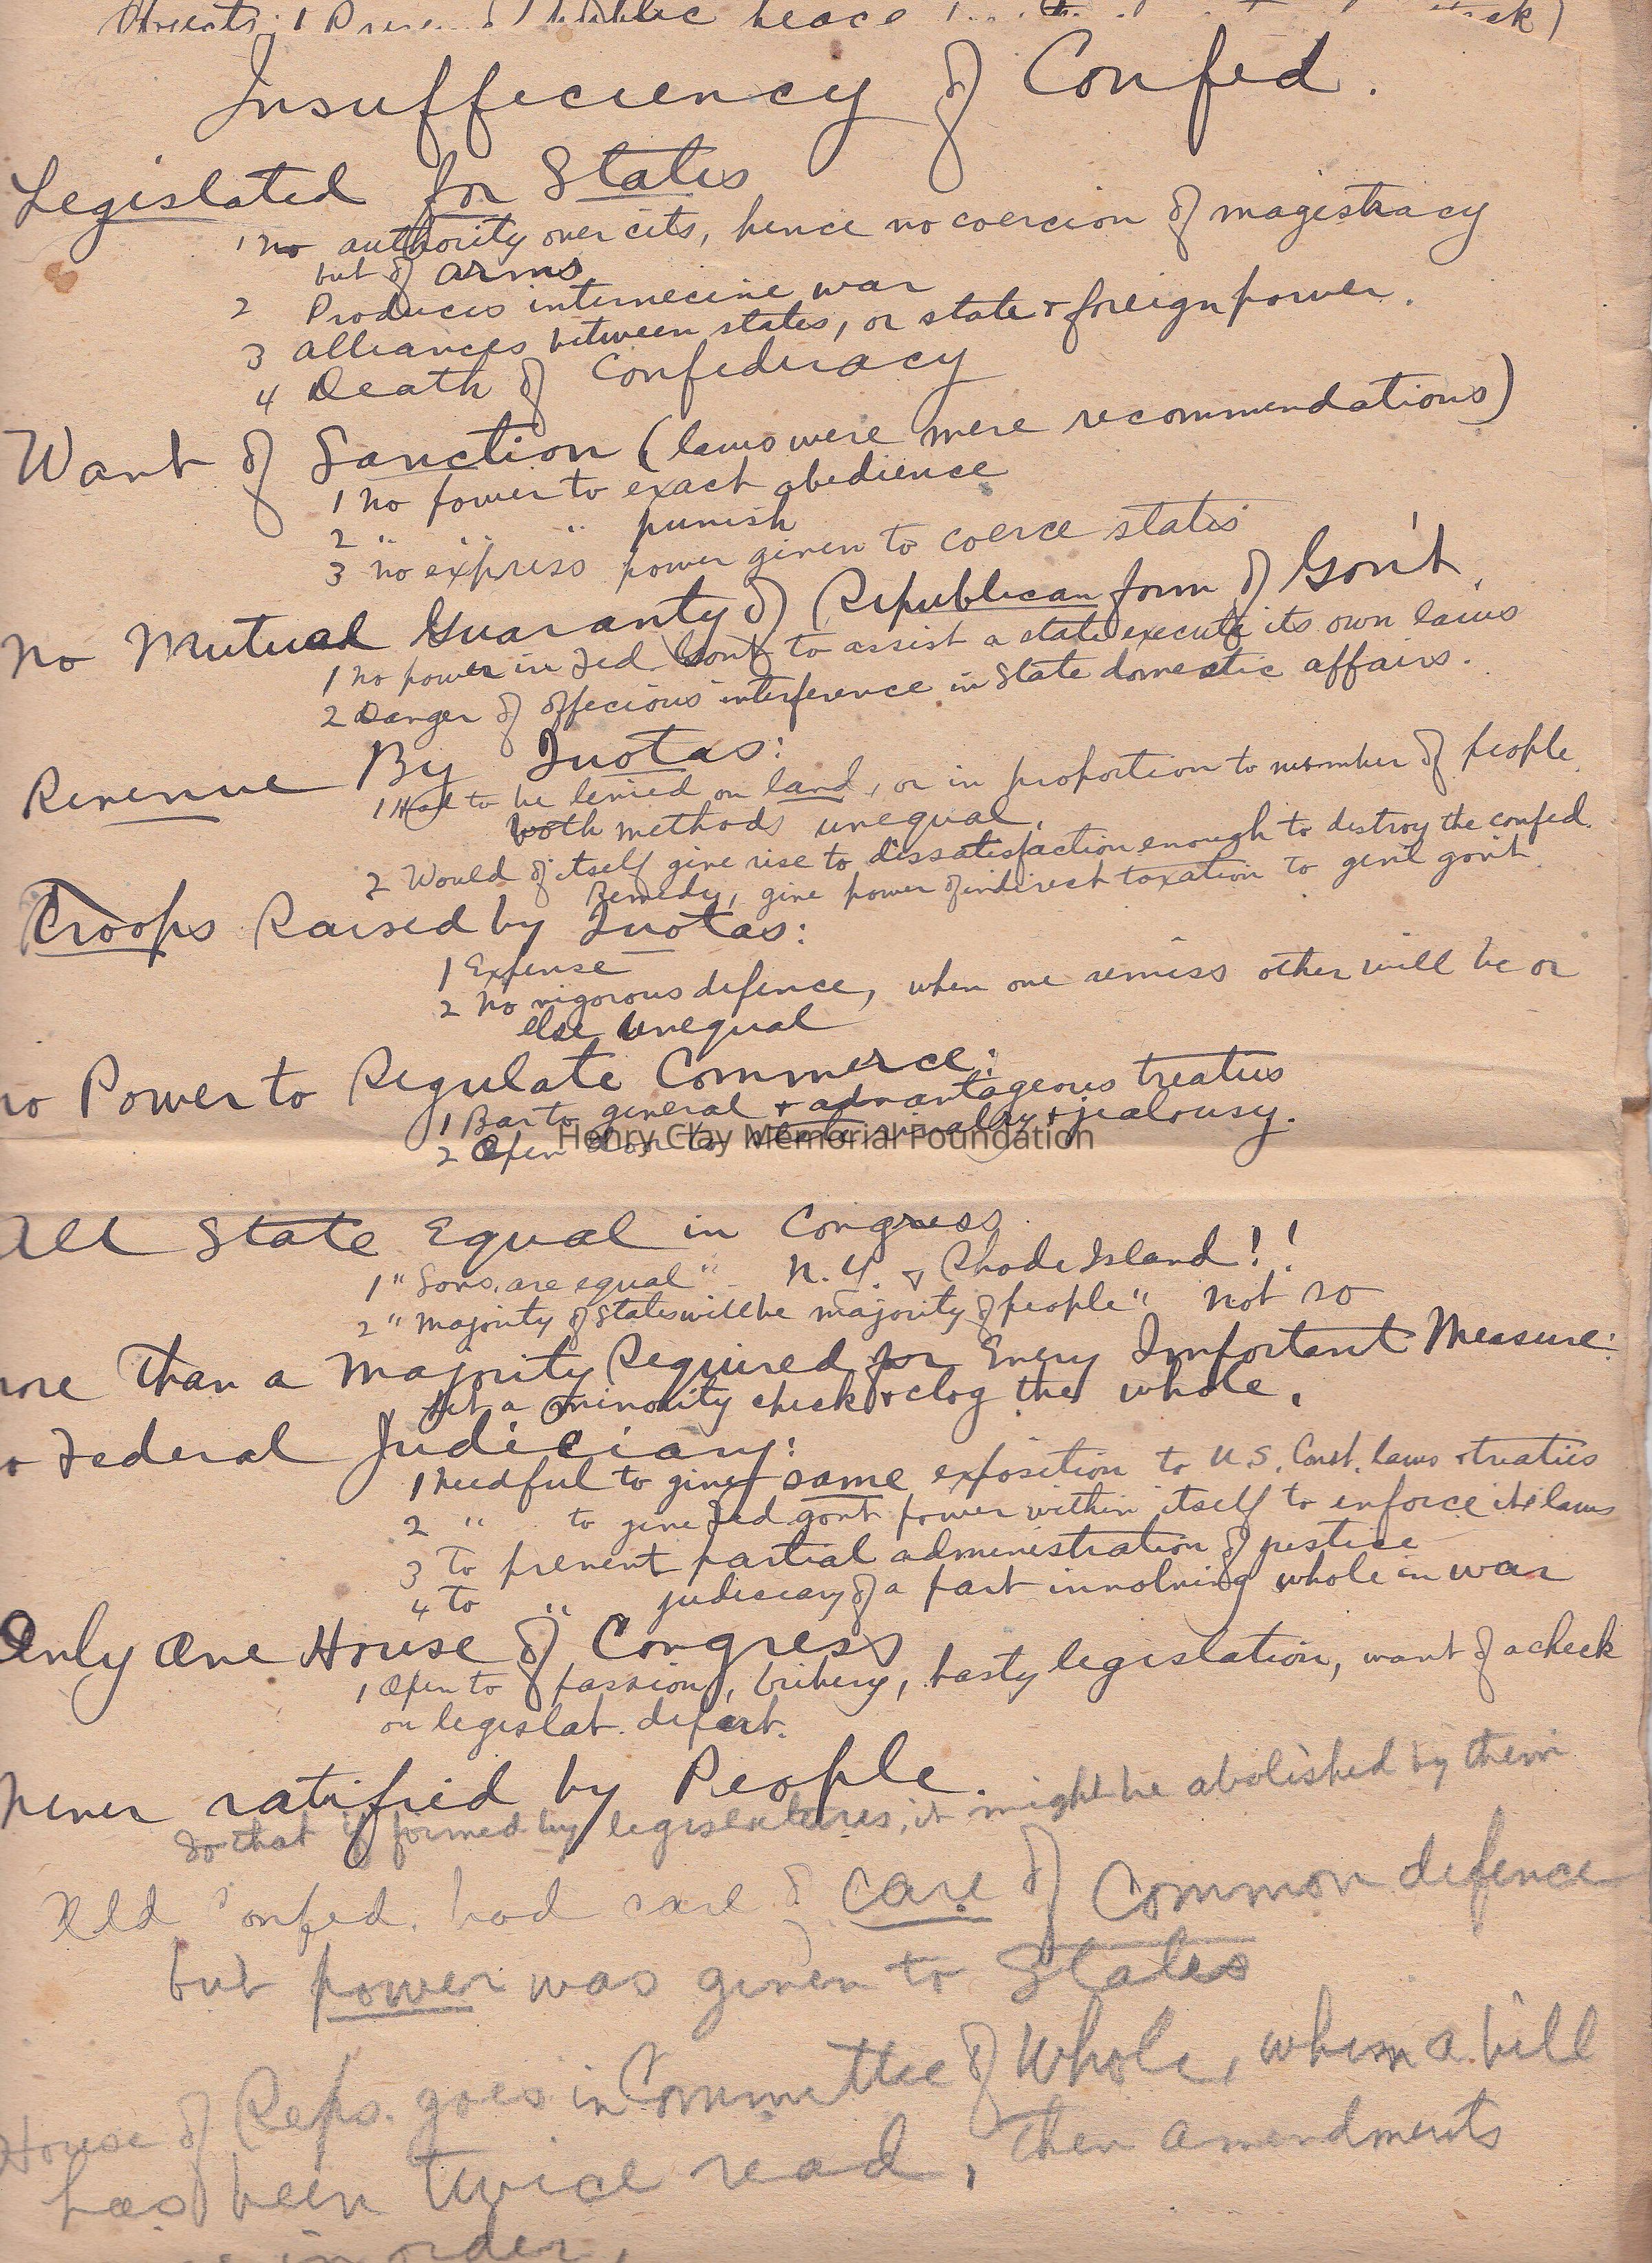 Public peace
Insufficiency of Confed.
Legislated for States
1 no authority over cits, hence no coercion of magistracy
but of arms
2 Produces internecine war
3 alliances between states, or state & foreign power.
4 Death of Confederacy
Want of Sanction (laws were mere recommendations)
1 no power to exact obedience
2 " " " punish
3 no express power given to coerce states
No Mutual Guaranty of Republican form of Gov't.
1 no power in Fed. Gov't to assist a state execute its own laws
2 Danger of officious interference in State domestic affairs.
Revenue By Quotas:
1 Had to be levied on land, or in proportion to number of people.
both methods unequal.
2 Would of itself give rise to dissatisfaction enough to destroy the confed.
Remedy, give power of indirect taxation to gen'l gov't
Troops Raised by Quotas:
1 Expense
2 no vigorous defence, when one remiss other will be or
else unequal
no Power to Regulate Commerce:
1 Bar to general & advantageous treaties
2 Open door to state rivalry & jealousy.
Henry Clay Memorial Foundation
All State Equal in Congress
1 "Sovs. are equal" - N.Y. & Rhode Island!!
2 "Majority of States will be majority of people" not so
ore Than a Majority Required for Every Important Measure:
let a minority check & clog the whole.
o Federal Judiciary:
1 needful to give same exposition to U.S. Const. laws & treaties
2 " to give Fed gov't power within itself to enforce its laws
3 To prevent partial administration of justice
4 To " judiciary of a part involving whole in war
Only One House of Congress
1 Open to passion, bribery, hasty legislation, want of a check
on legislat. depart.
Never ratified by People.
So that if formed by legislatures, it might be abolished by them
Old Confed. had care of care of Common defence
but power was given to States
House of Reps. goes in Committee of Whole, when a bill
has been twice read, then amendments
in order.